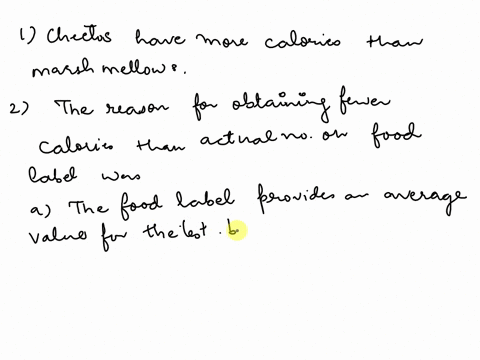 1) Cheetos have more calories than
marsh mellows.
2) The reason for obtaining fewer
calories than actual no. on food
label was
a) The food label provides an average
value for the test. b